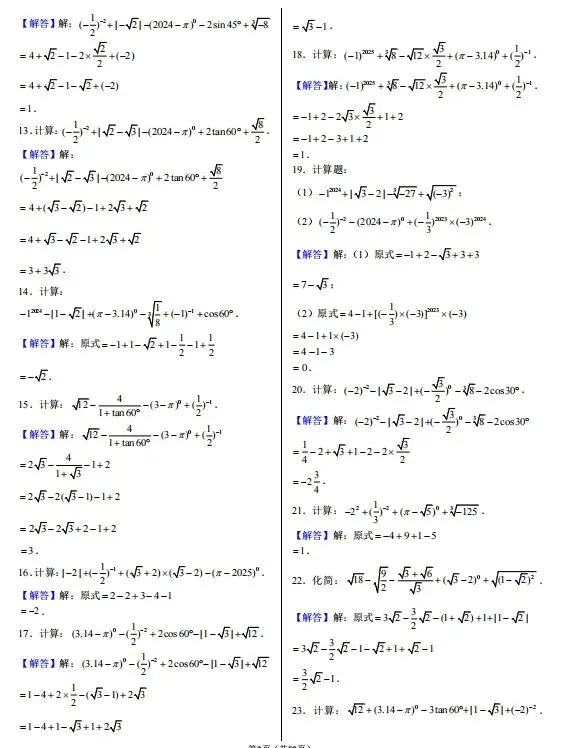 【解答】解：(-1/2)⁻²+|-√2|-(2024-π)⁰-2sin45°+∛-8
=4+√2-1-2×√2/2+(-2)
=4+√2-1-√2+(-2)
=1．
13.计算：(-1/2)⁻²+|√2-√3|-(2024-π)⁰+2tan60°+√8/2．
【解答】解：
(-1/2)⁻²+|√2-√3|-(2024-π)⁰+2tan60°+√8/2
=4+(√3-√2)-1+2√3+√2
=4+√3-√2-1+2√3+√2
=3+3√3．
14．计算：
-1²⁰²⁴-|1-√2|+(π-3.14)⁰-∛(1/8)+(-1)⁻¹+cos60°．
【解答】解：原式=-1+1-√2+1-1/2-1+1/2
=-√2．
15．计算：√12-4/(1+tan60°)-(3-π)⁰+(1/2)⁻¹．
【解答】解：√12-4/(1+tan60°)-(3-π)⁰+(1/2)⁻¹
=2√3-4/(1+√3)-1+2
=2√3-2(√3-1)-1+2
=2√3-2√3+2-1+2
=3．
16.计算：|-2|+(-1/2)⁻¹+(√3+2)×(√3-2)-(π-2025)⁰．
【解答】解：原式=2-2+3-4-1
=-2．
17．计算：(3.14-π)⁰-(1/2)⁻²+2cos60°-|1-√3|+√12．
【解答】解：(3.14-π)⁰-(1/2)⁻²+2cos60°-|1-√3|+√12
=1-4+2×1/2-(√3-1)+2√3
=1-4+1-√3+1+2√3
=√3-1．
18．计算：(-1)²⁰²⁵+∛8-√12×√3/2+(π-3.14)⁰+(1/2)⁻¹．
【解答】解：(-1)²⁰²⁵+∛8-√12×√3/2+(π-3.14)⁰+(1/2)⁻¹．
=-1+2-2√3×√3/2+1+2
=-1+2-3+1+2
=1．
19．计算题：
（1）-1²⁰²⁴+|√3-2|-∛-27+√(-3)²；
（2）(-1/2)⁻²-(2024-π)⁰+(-1/3)²⁰²³×(-3)²⁰²⁴．
【解答】解：（1）原式=-1+2-√3+3+3
=7-√3；
（2）原式=4-1+[(-1/3)×(-3)]²⁰²³×(-3)
=4-1+1×(-3)
=4-1-3
=0．
20．计算：(-2)⁻²-|√3-2|+(-√3/2)⁰-∛8-2cos30°．
【解答】解：(-2)⁻²-|√3-2|+(-√3/2)⁰-∛8-2cos30°
=1/4-2+√3+1-2-2×√3/2
=-2 3/4．
21．计算：-2²+(1/3)⁻²+(π-√5)⁰+∛-125．
【解答】解：原式=-4+9+1-5
=1．
22．化简：√18-√(9/2)-(√3+√6)/√3+(√3-2)⁰+√(1-√2)²．
【解答】解：原式=3√2-3/2√2-(1+√2)+1+|1-√2|
=3√2-3/2√2-1-√2+1+√2-1
=3/2√2-1．
23．计算：√12+(3.14-π)⁰-3tan60°+|1-√3|+(-2)⁻²．